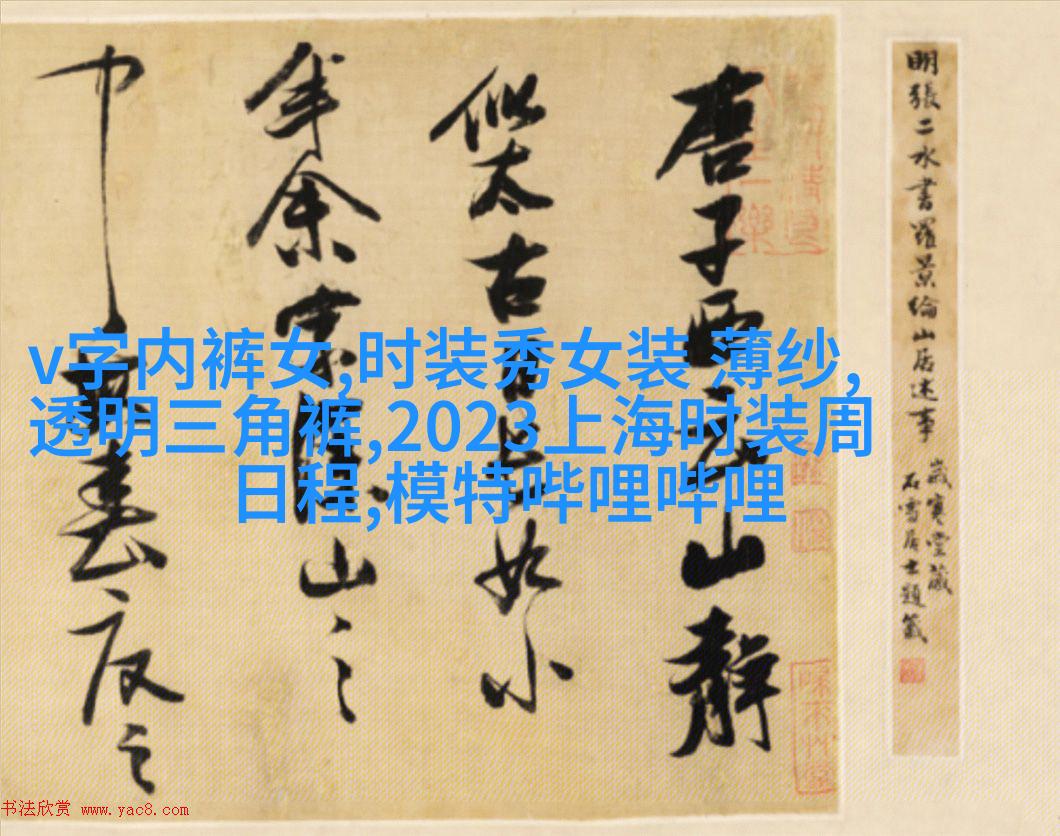 明張二水書羅景綸山居述事
歲寒堂藏
石雪居士題籤
唐子西云山靜
似太古日長如小
年余家深山之
中每春夏之
v字内裤女,时装秀女装 薄纱,
透明三角裤,2023上海时装周
日程,模特哔哩哔哩
书法欣赏 www.yac8.com